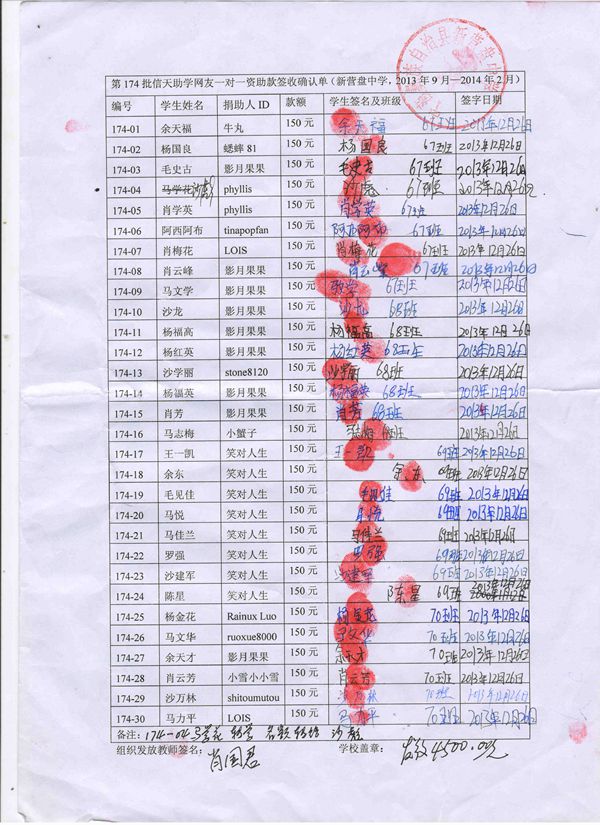 自治县新营盘中学
第 174 批信天助学网友一对一资助款签收确认单（新营盘中学，2013 年 9 月—2014 年 2 月）
编号 学生姓名 捐助人 ID 款额 学生签名及班级 签字日期
174-01 余天福 牛丸 150 元 余天福 67班 2013年12月26日
174-02 杨国良 蟋蟀 81 150 元 杨国良 67班 2013年12月26日
174-03 毛史古 影月果果 150 元 毛史古 67班 2013年12月26日
174-04 马学花 沙彪 phyllis 150 元 沙彪 67班 2013年12月26日
174-05 肖学英 phyllis 150 元 肖学英 67班 2013年12月26日
174-06 阿西阿布 tinapopfan 150 元 阿西阿布 67班 2013年12月26日
174-07 肖梅花 LOIS 150 元 肖梅花 67班 2013年12月26日
174-08 肖云峰 影月果果 150 元 肖云峰 67班 2013年12月26日
174-09 马文学 影月果果 150 元 67班 2013年12月26日
174-10 沙龙 影月果果 150 元 沙龙 68班 2013年12月26日
174-11 杨福高 影月果果 150 元 杨福高 68班 2013年12月26日
174-12 杨红英 影月果果 150 元 杨红英 68班 2013年12月26日
174-13 沙学丽 stone8120 150 元 沙学丽 68班 2013年12月26日
174-14 杨福英 影月果果 150 元 杨福英 68班 2013年12月26日
174-15 肖芳 影月果果 150 元 肖芳 68班 2013年12月26日
174-16 马志梅 小蟹子 150 元 68班 2013年12月26日
174-17 王一凯 笑对人生 150 元 王一凯 69班 2013年12月26日
174-18 余东 笑对人生 150 元 余东 69班 2013年12月26日
174-19 毛见佳 笑对人生 150 元 毛见佳 69班 2013年12月26日
174-20 马悦 笑对人生 150 元 马悦 69班 2013年12月26日
174-21 马佳兰 笑对人生 150 元 马佳兰 69班 2013年12月26日
174-22 罗强 笑对人生 150 元 罗强 69班 2013年12月26日
174-23 沙建军 笑对人生 150 元 沙建军 69班 2013年12月26日
174-24 陈星 笑对人生 150 元 陈星 69班 2013年12月26日
174-25 杨金花 Rainux Luo 150 元 杨金花 70班 2013年12月26日
174-26 马文华 ruoxue8000 150 元 马文华 70班 2013年12月26日
174-27 余天才 影月果果 150 元 余天才 70班 2013年12月26日
174-28 肖云芳 小雪小小雪 150 元 肖云芳 70班 2013年12月26日
174-29 沙万林 shitoumutou 150 元 沙万林 70班 2013年12月26日
174-30 马力平 LOIS 150 元 马力平 70班 2013年12月26日
备注：174-04 马学花 转学 名额转给 沙彪
组织发放教师签名： 肖国君 学校盖章： 发放4500.00元